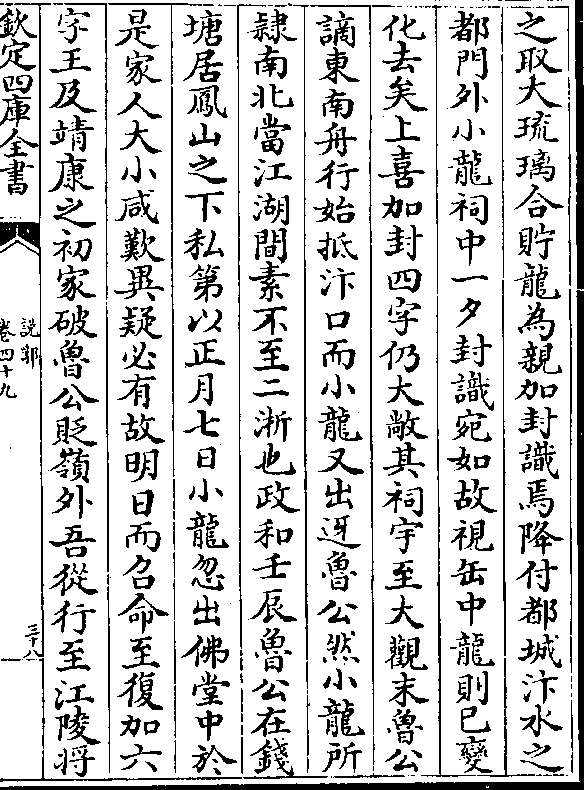 之取大琉璃合貯龍為親加封識焉降付都城汴水之
都門外小龍祠中一夕封識宛如故視缶中龍則已變
化去矣上喜加封四字仍大敞其祠宇至大觀末魯公
謫東南舟行始抵汴口而小龍又出迓魯公然小龍所
隷南北當江湖間素不至二浙也政和壬辰魯公在錢
塘居鳳山之下私第以正月七日小龍忽出佛堂中於
是家人大小咸歎異疑必有故明日而召命至復加六
字王及靖康之初家破魯公貶嶺外吾從行至江陵將
欽定四庫全書
說郛
卷四十九
三十八